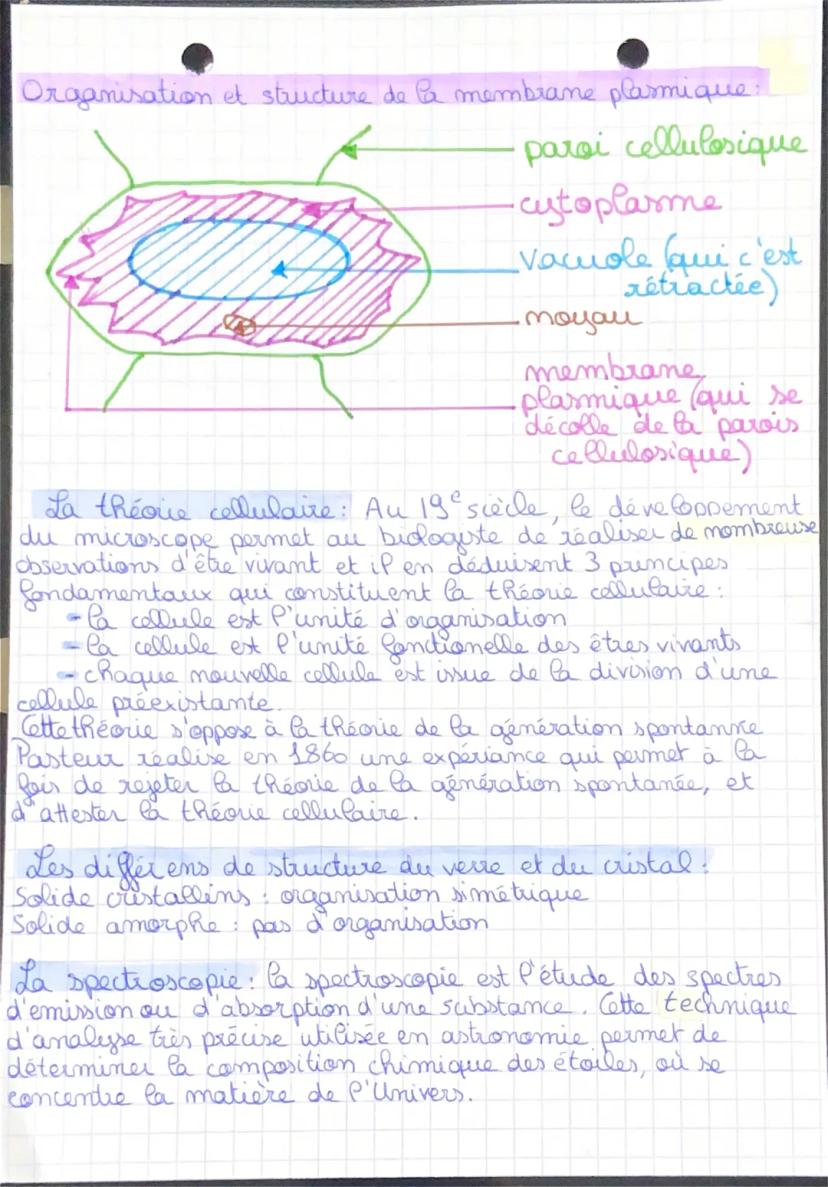 Organisation et structure de la membrane plasmique :
paroi cellulosique
cytoplasme
vacuole (qui c'est
rétractée)
noyau
membrane
plasmique (qui se
décolle de la parois
cellulosique)
La théorie cellulaire : Au 19e siècle, le développement
du microscope permet au biologiste de réaliser de nombreuse
observations d'être vivant et il en déduisent 3 principes
fondamentaux qui constituent la théorie cellulaire :
- la cellule est l'unité d'organisation
- la cellule est l'unité fonctionelle des êtres vivants
- chaque nouvelle cellule est issue de la division d'une
cellule préexistante.
Cette théorie s'oppose à la théorie de la génération spontannée
Pasteur réalise en 1860 une expériance qui permet à la
fois de rejeter la théorie de la génération spontanée, et
d'attester la théorie cellulaire.
Les différens de structure du verre et du cristal :
Solide cristallins : organisation simétrique
Solide amorphe : pas d'organisation
La spectroscopie : la spectroscopie est l'étude des spectres
d'emission ou d'absorption d'une substance. Cette technique
d'analyse très précise utilisée en astronomie permet de
déterminer la composition chimique des étoiles, où se
concentre la matière de l'Univers.